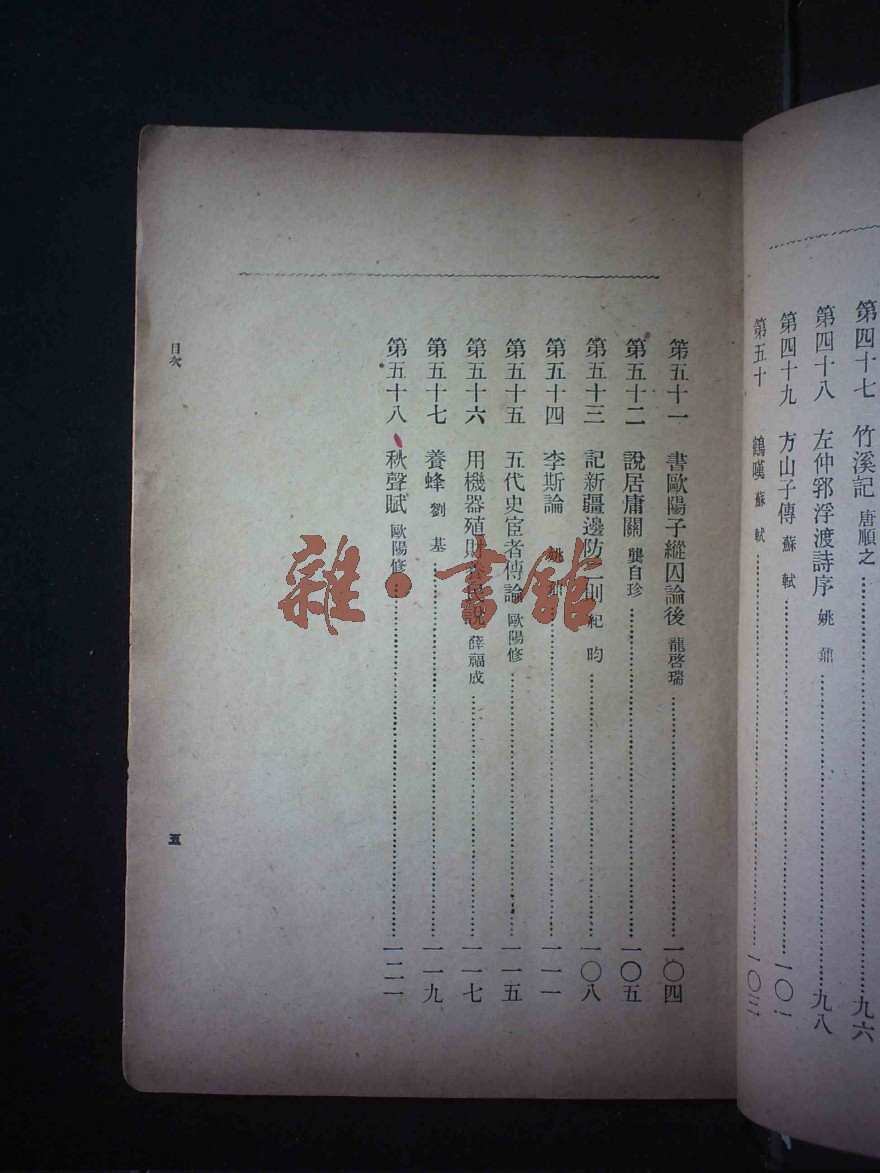 第四十七 竹溪記 唐順之………九六
第四十八 左仲郛浮渡詩序 姚鼐………九八
第四十九 方山子傳 蘇軾………一〇一
第五十 鶴嘆 蘇軾………一〇三
第五十一 書歐陽子縱囚論後 龍啓瑞………一〇四
第五十二 說居庸關 龔自珍………一〇五
第五十三 記新疆邊防二則 紀昀………一〇八
第五十四 李斯論 姚鼐………一一一
第五十五 五代史宦者傳論 歐陽修………一一五
第五十六 用機器殖財養民說 薛福成………一一七
第五十七 養蜂 劉基………一一九
第五十八 秋聲賦 歐陽修………一二一
目次
五
雜·書館